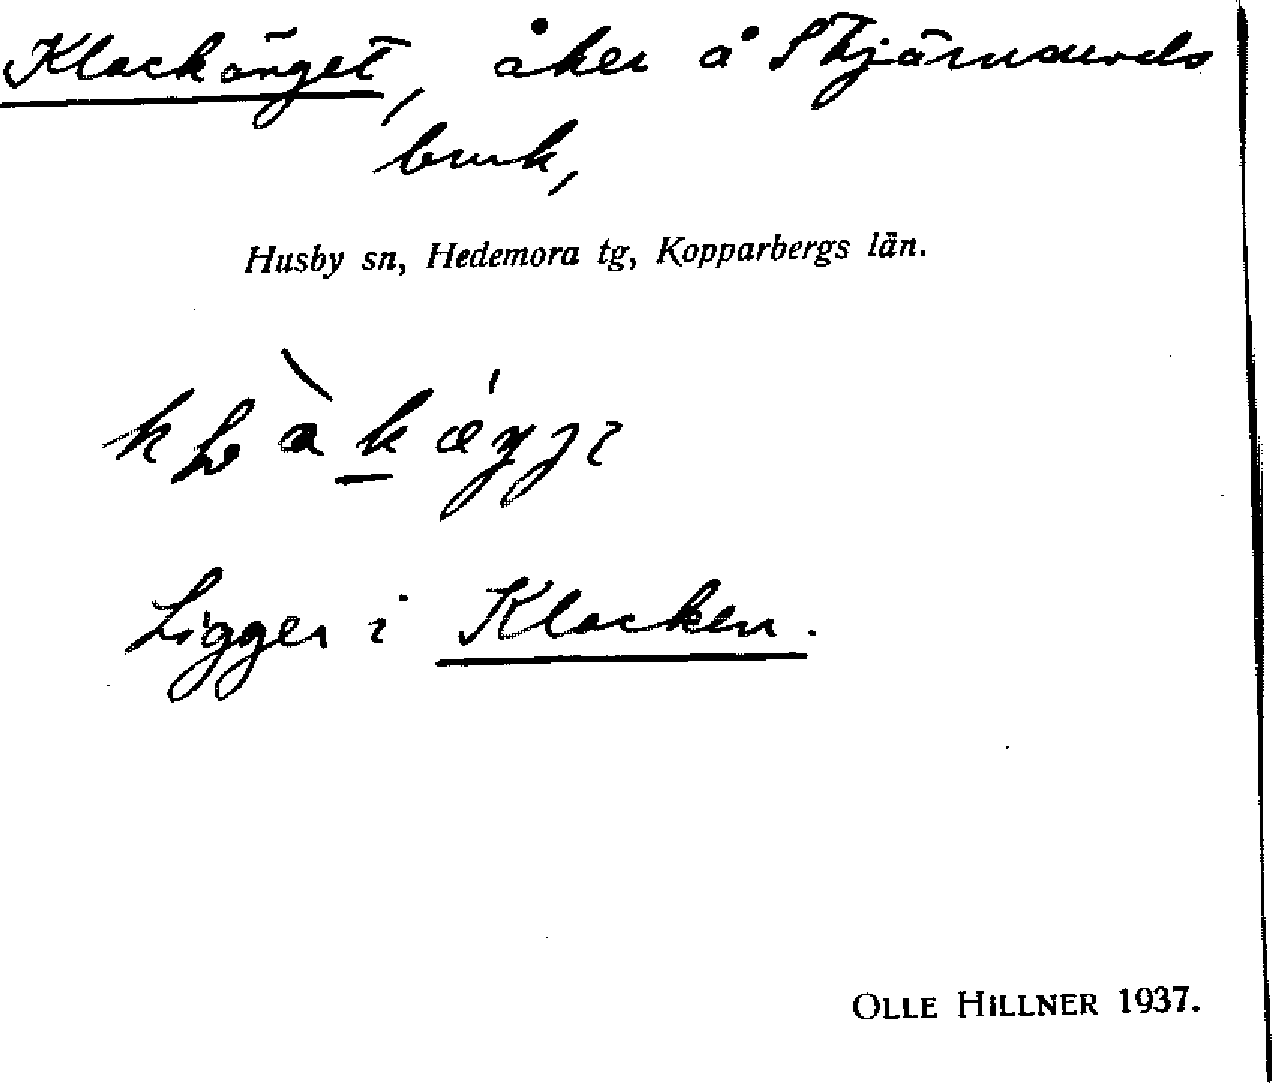 Klockänget, åker å Stjärnsunds
bruk,
Husby sn, Hedemora tg, Kopparbergs län.
Ligger i Klocken.
OLLE HILLNER 1937.